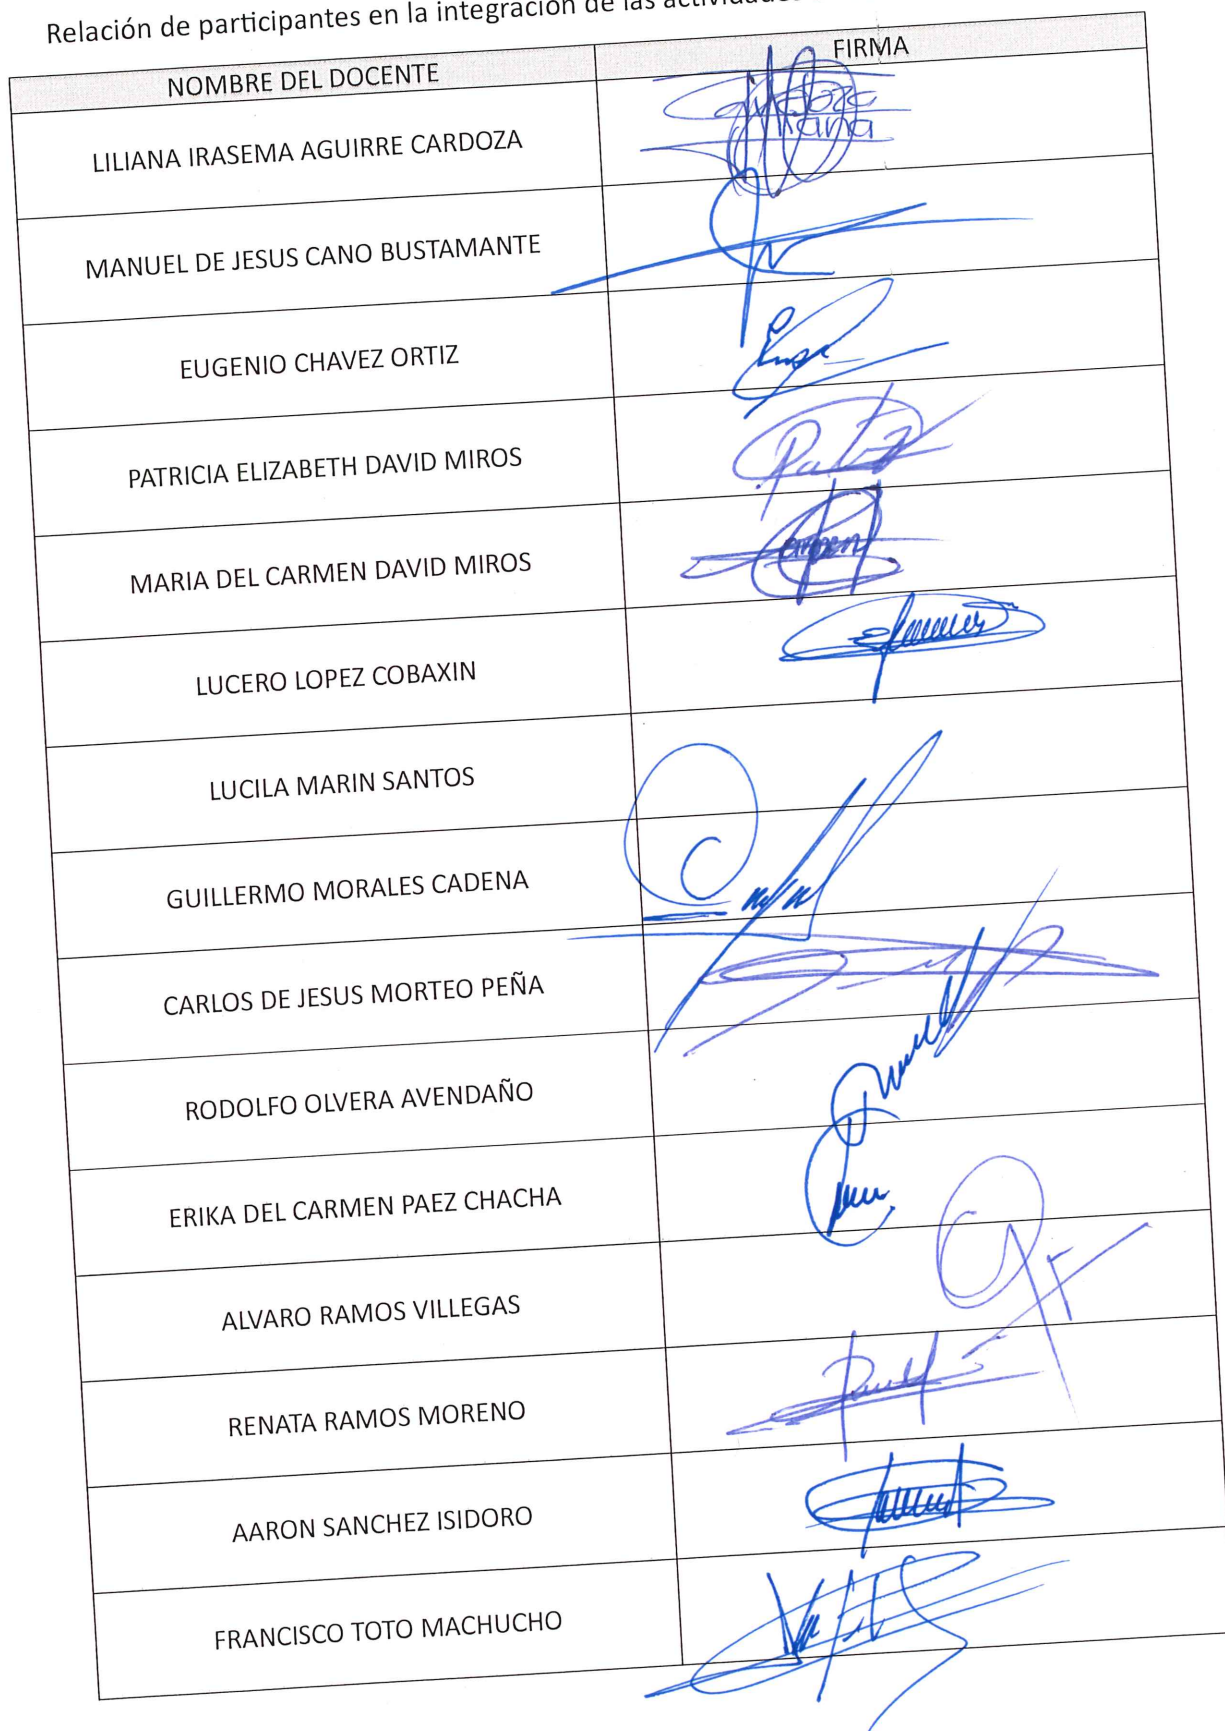 Relación de participantes en la integración de las actividades
NOMBRE DEL DOCENTE
FIRMA
LILIANA IRASEMA AGUIRRE CARDOZA
MANUEL DE JESUS CANO BUSTAMANTE
EUGENIO CHAVEZ ORTIZ
PATRICIA ELIZABETH DAVID MIROS
MARIA DEL CARMEN DAVID MIROS
LUCERO LOPEZ COBAXIN
LUCILA MARIN SANTOS
GUILLERMO MORALES CADENA
CARLOS DE JESUS MORTEO PEÑA
RODOLFO OLVERA AVENDAÑO
ERIKA DEL CARMEN PAEZ CHACHA
ALVARO RAMOS VILLEGAS
RENATA RAMOS MORENO
AARON SANCHEZ ISIDORO
FRANCISCO TOTO MACHUCHO